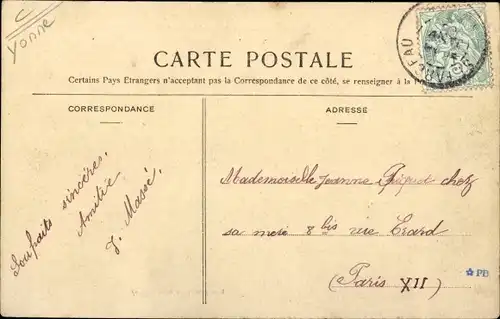 Yonne
CARTE POSTALE
Certains Pays Etrangers n'acceptant pas la Correspondance de ce côté, se renseigner à la
CORRESPONDANCE
ADRESSE
Souhaits sincères.
Amitié
J. Massé.
Mademoiselle Jeanne chez
sa mère 8 bis rue Erard
(Paris XII)
PB